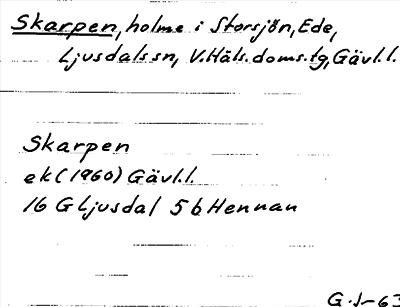 Skarpen, holme i Storsjön, Ede,
Ljusdals sn, V.Häls.doms.tg, Gävl.l.
Skarpen
ek (1960) Gävl.l.
16 G Ljusdal 5 b Hennan
G.J-63